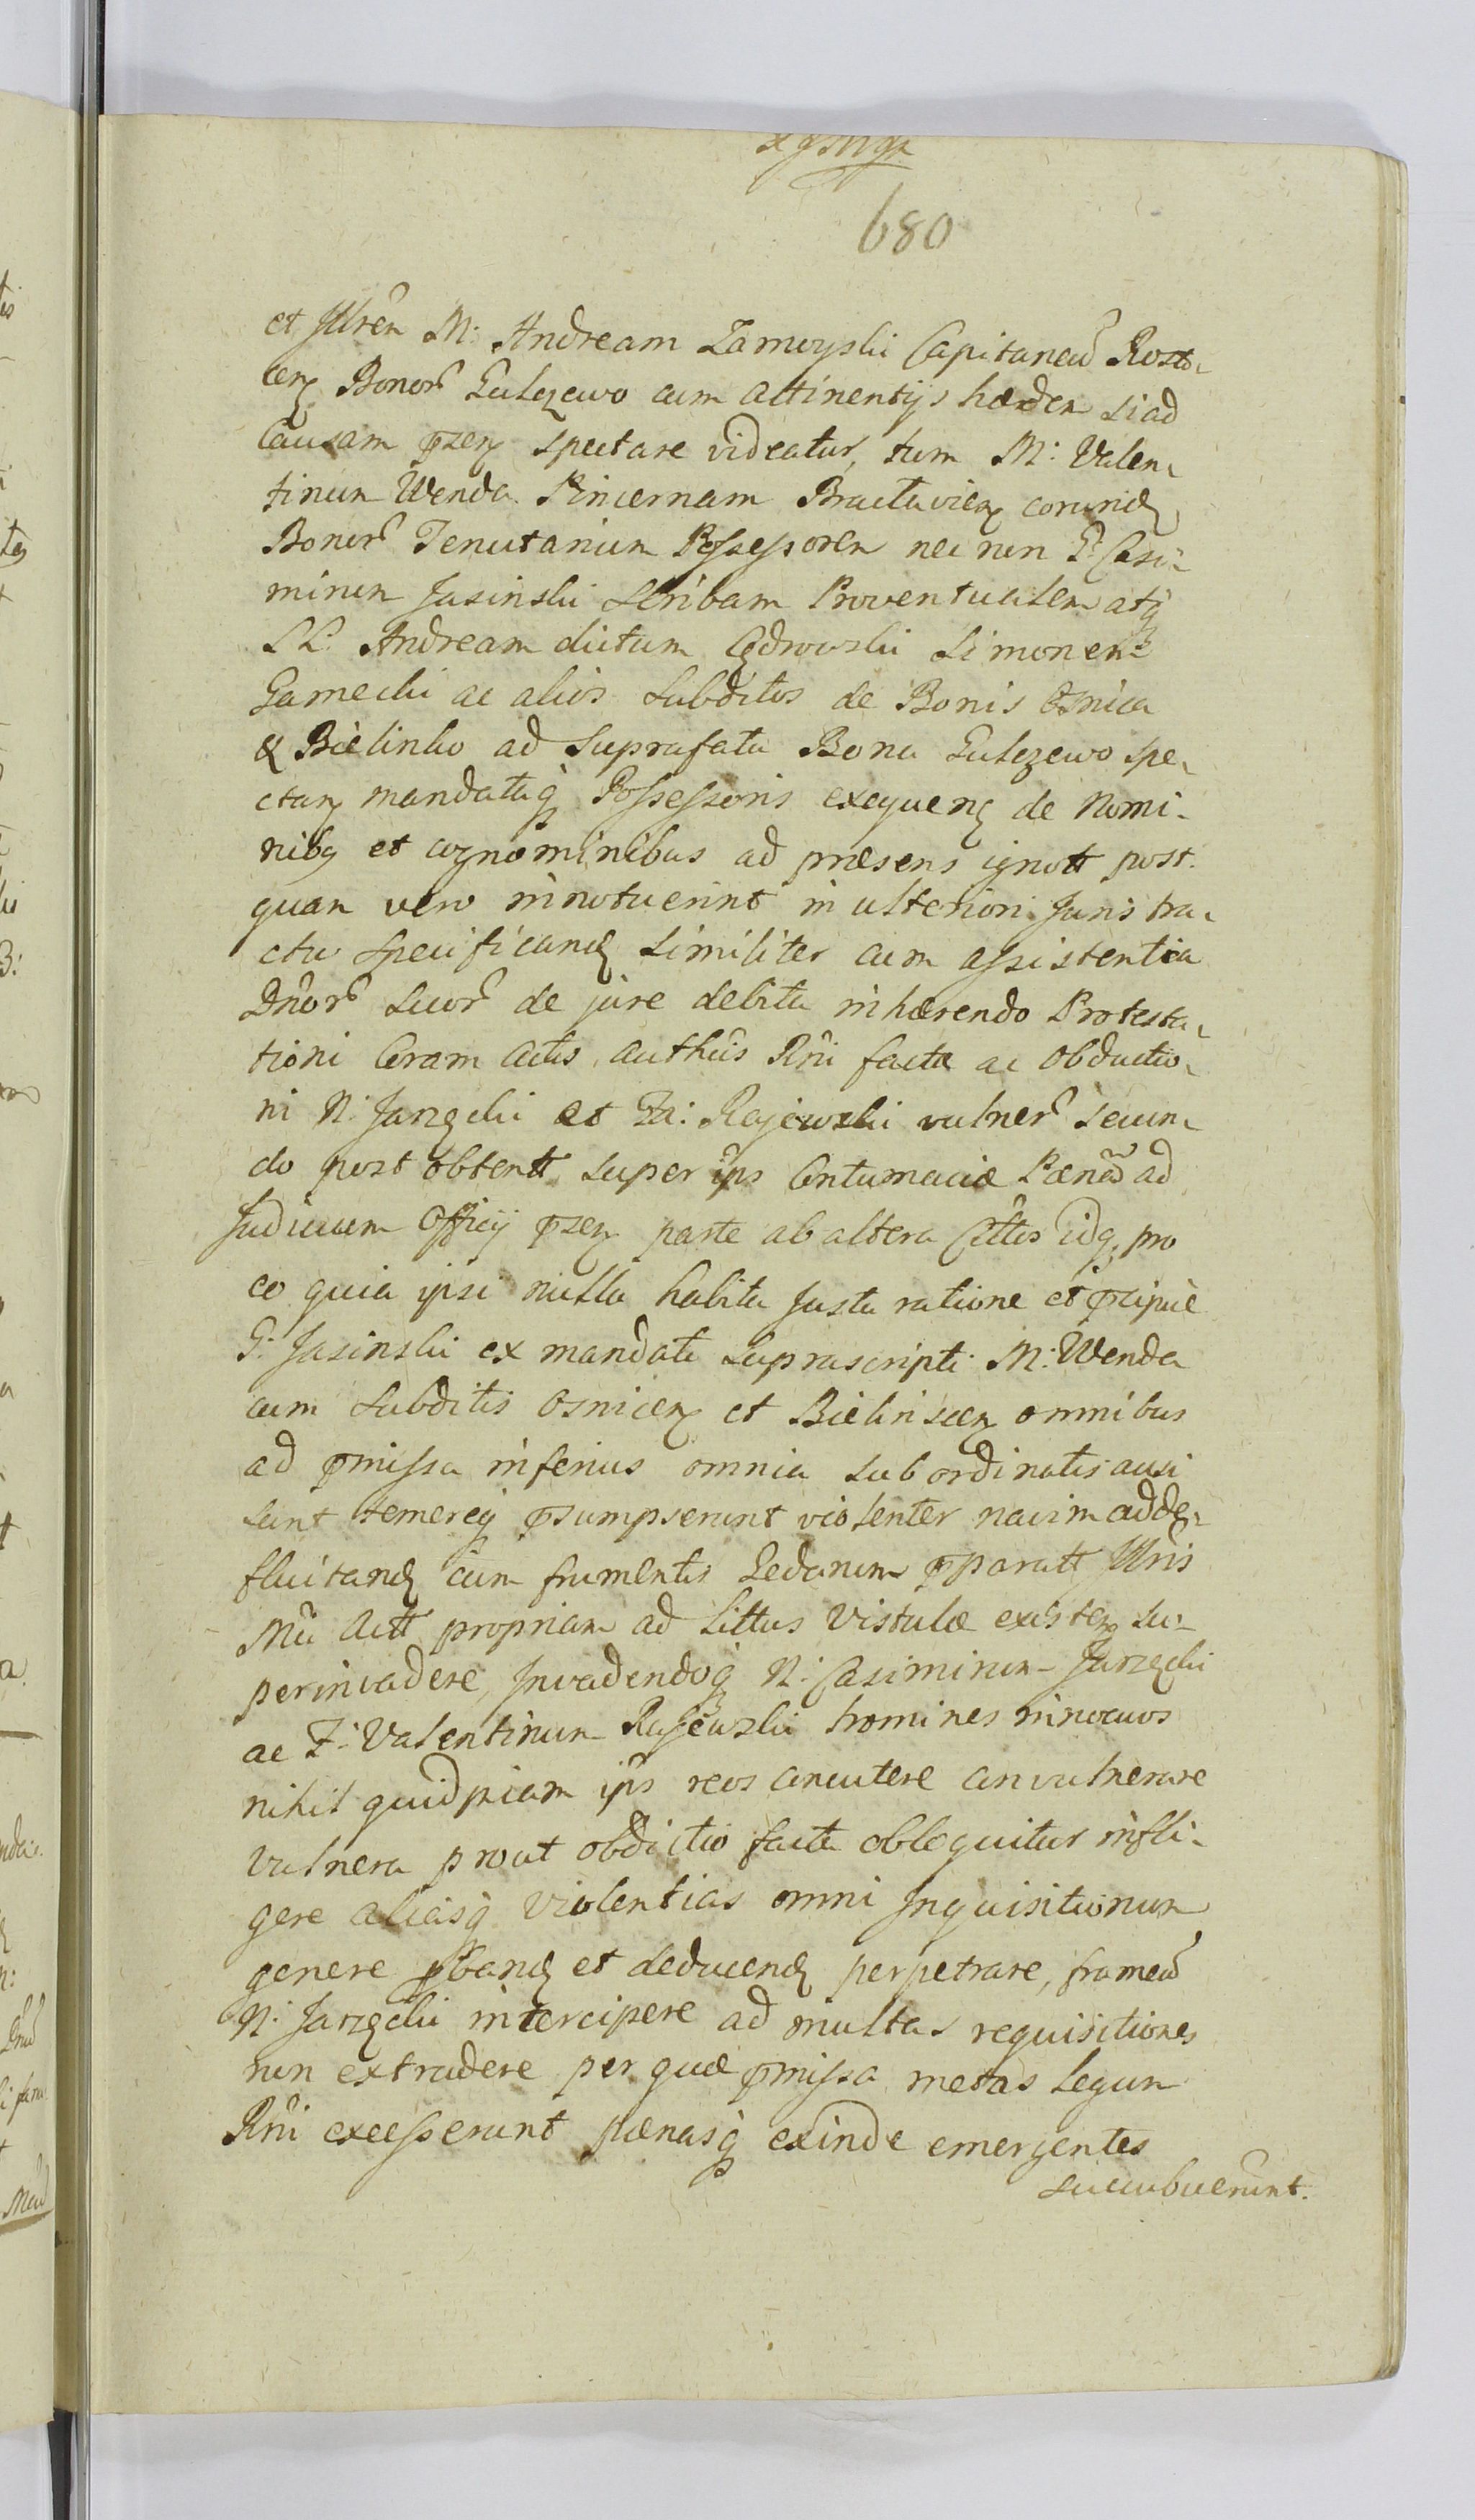 680
et Jllrẽn M: Andream Zamoyski Capitaneũ Rosto-
cen̄ Bonor̃ Gulczewo cum attinentijs hæredem si ad
Causam p̃sen̄ spectare videatur, tum M: Valen-
tinum Wenda Pincernam Bractavien̄ eorund̄
Bonor̃ Tenutarium Possessorem nec non G: Casi-
mirum Jasinski Scribam Proventualem atq̨
LL: Andream dictum Cędrowski Simonem
Gamecki ac alios Subditos de Bonis Osnica
& Bielinko ad Suprafata Bona Gulczewo spe-
ctan̄ mandatiq̨ Possessoris exequen̄ de Nomi-
nibq̨ et cognominibus ad præsens ignott post
quam vero innotuerint in ulteriori Juris tra-
ctu specificand̄ similiter cum assistentia
Dn̄or̃ Suor̃ de jure debita inhærendo Protesta-
tioni Coram Actis authũis Rñi factæ ac Obductio-
ni N: Jarzęcki et Fa: Rajewski vulner̃ secun-
do post obtentt super ip̃s Contumaciæ Pænã ad
Judicium Officij p̃sen̄ parte ab altera Cittis idq̨ pro
eo quia ipsi nulla habita justa ratione et p̃cipuè
G: Jasinski ex mandato suprascripti M: Wenda
cum Subditis Osnicen̄ et Bielinscen̄ omnibus
ad p̃missa inferius omnia subordinatis ausi
sunt temereq̨ p̃sumpserunt violenter navim ad de-
fluitand̄ cum frumentis Gedanum p̃paratt Jllris
Mci Actt propriam ad littus Vistulæ existen̄ su-
perinvadere, Jnvadendoq̨ N: Casimirum Jarzęcki
ac F: Valentinum Rajewski homines innocuos
nihil quidpiam ip̃s reos concutere convulnerare
vulnera prout obdictio facta obloquitur infli-
gere aliasq̨ violentias omni Jnquisitionum
genere p̃band̄ et deducend̄ perpetrare, frameã
N: Jarzęcki intercipere ad multas requisitiones
non extradere per quæ p̃missa metas legum
Rñi excesserunt pænasq̨ exinde emergentes
succubuerunt.